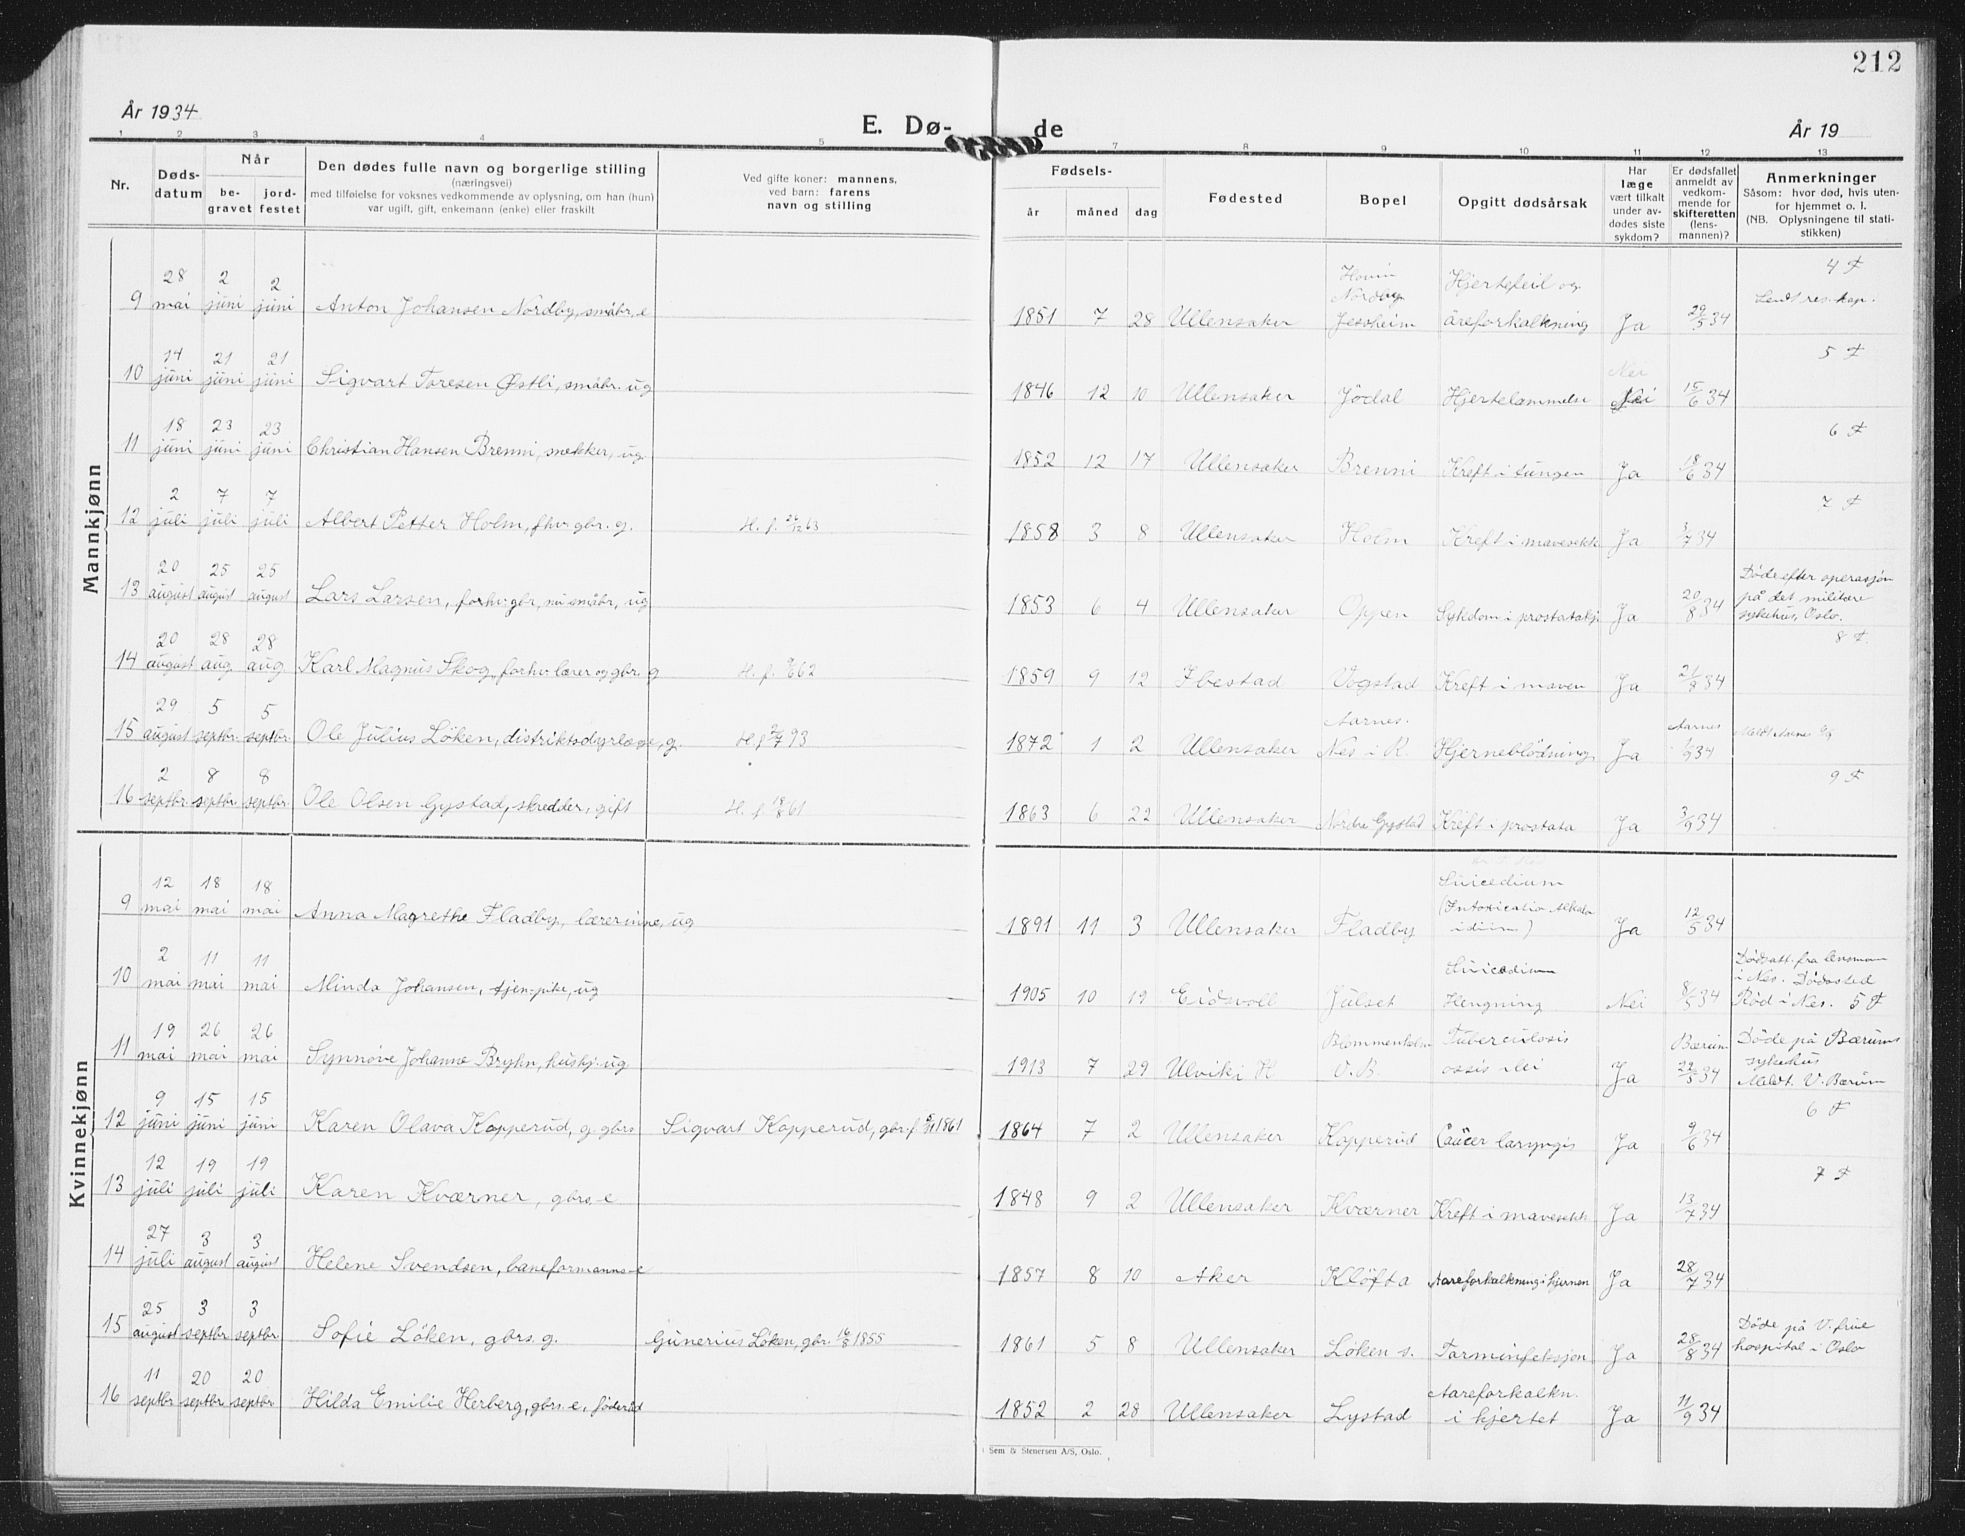 212
År 1934
E. Dø-
de
År 19
1 2 3 4 5 7 8 9 10 11 12 13
Nr.
Døds-
datum
Når
be-
gravet
jord-
festet
Den dødes fulle navn og borgerlige stilling
(næringsvei)
med tilføielse for voksnes vedkommende av oplysning, om han (hun)
var ugift, gift, enkemann (enke) eller fraskilt
Ved gifte koner: mannens,
ved barn: farens
navn og stilling
Fødsels-
år måned dag
Fødested
Bopel
Opgitt dødsårsak
Har
læge
vært tilkalt
under av-
dødes siste
sykdom?
Er dødsfallet
anmeldt av
vedkom-
mende for
skifteretten
(lens-
mannen)?
Anmerkninger
Såsom: hvor død, hvis uten-
for hjemmet o. l.
(NB. Oplysningene til stati-
stikken)
Mannkjønn
9 28 mai 2 juni 2 juni Anton Johansen Nordby, småbr, e 1851 7 28 Ullensaker Hovin Nordby Jessheim Hjertefeil og åreforkalkning Ja 29/5 34 4 F
10 14 juni 21 juni 21 juni Sigvart Toresen Østli, småbr. ug 1846 12 10 Ullensaker Jödal Hjertelammelse Nei Nei 15/6 34 5 F
11 18 juni 23 juni 23 juni Christian Hansen Brenni, snekker, ug. 1852 12 17 Ullensaker Brenni Kreft i tungen Ja 18/6 34 6 F
12 2 juli 7 juli 7 juli Albert Petter Holm, fhv. gbr. g. H. f. 26/12 63 1858 3 8 Ullensaker Holm Kreft i mavesekk Ja 3/7 34 7 F
13 20 august 25 august 25 august Lars Larsen, forhv. gbr, nu småbr, ug 1853 6 4 Ullensaker Oppen Sykdom i prostatakj. Ja 20/8 34 Döde efter operasjon på det militære sykehus, Oslo.
14 20 august 28 aug. 28 aug. Karl Magnus Skog, forhv. lærer og gbr. g H. f. 62 1859 9 12 Ibestad Vogstad Kreft i maven Ja 21/8 34 8 F.
15 29 august 5 septbr. 5 septbr. Ole Julius Löken, distriktsdyrlæge, g. H. f 2/7 93 1872 1 2 Ullensaker Aarnes. Nes i R. Hjerneblödning Ja Aarnes 1/9 34 Meldt Aarnes
16 2 septbr 8 septbr 8 septbr. Ole Olsen Gystad, skredder, gift H. f. 18/8 61 1863 6 22 Ullensaker Nordre Gystad Kreft i prostata Ja 3/9 34 9 F
Kvinnekjønn
9 12 mai 18 mai 18 mai Anna Magrethe Fladby, lærerinne, ug 1891 11 3 Ullensaker Fladby Suicidium (Intoxicatio Alkaloidium) Ja 12/5 34
10 2 mai 11 mai 11 mai Minda Johansen, tjen.pike, ug 1905 10 19 Eidsvoll Julset Suicidium Hengning Nei 8/5 34 Dödsatt. fra lensmann i Nes. Dödssted Röd i Nes. 5 F
11 19 mai 26 mai 26 mai Synnöve Johanne Bryhn, hushj. ug 1913 7 29 Ulvik i H Blommenholm V. B. Tuberculosis ossis ilei Ja Bærum 22/5 34 Döde på Bærums sykehus Meldt. V. Bærum
12 9 juni 15 juni 15 juni Karen Olava Kopperud, g. gbrs Sigvart Kopperud, gbr. f. 5/11 1861 1864 7 2 Ullensaker Kopperud Cancer laryngis Ja 9/6 34 6 F
13 12 juli 19 juli 19 juli Karen Kværner, gbrs. e 1848 9 2 Ullensaker Kværner Kreft i mavesekk Ja 13/7 34 7 F
14 27 juli 3 august 3 august Helene Svendsen, baneformanns-e 1857 8 10 Aker Klöfta Aareforkalkning i hjernen Ja 28/7 34
15 25 august 3 septbr 3 septbr Sofie Löken, gbrs. g. Gunerius Löken, gbr. 16/8 1855 1861 5 8 Ullensaker Löken s. Tarminfeksjon Ja 28/8 34 Döde på V. frue hospital i Oslo
16 11 septbr 20 septbr 20 septbr Hilda Emilie Herberg, gbrs. e, föderåd 1852 2 28 Ullensaker Lystad Aareforkalkn. i hjertet Ja 11/9 34
Sem & Stenersen A/S, Oslo.